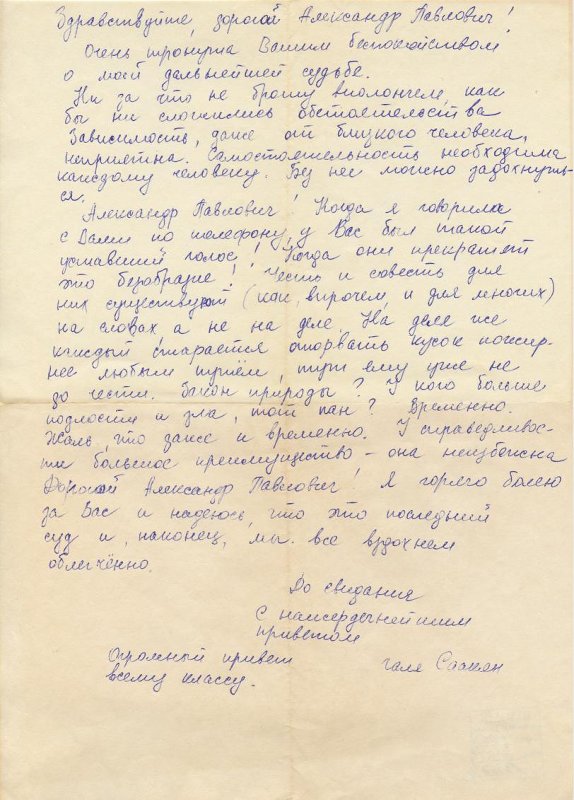 Здравствуйте, дорогой Александр Павлович!
Очень тронута Вашим беспокойством
о моей дальнейшей судьбе.
Ни за что не брошу виолончель, как
бы ни сложились обстоятельства
Зависимость, даже от близкого человека,
неприятна. Самостоятельность необходима
каждому человеку. Без нее можно задохнуть-
ся.
Александр Павлович! Когда я говорила
с Вами по телефону, у Вас был такой
уставший голос! Когда они прекратят
это безобразие! Честь и совесть для
них существуют (как, впрочем, и для многих)
на словах а не на деле. На деле же
каждый старается оторвать кусок пожир-
нее любым путем, тут ему уже не
до чести. Закон природы? У кого больше
подлости и зла, тот пан? Временно.
Жаль, что даже и временно. У справедливос-
ти большое преимущество – она неизбежна
Дорогой Александр Павлович! Я горячо болею
за Вас и надеюсь, что это последний
суд и, наконец, мы все вздохнем
облегчённо.
До свидания
С наисердечнейшим
приветом
Огромный привет
всему классу.
Галя Саакян